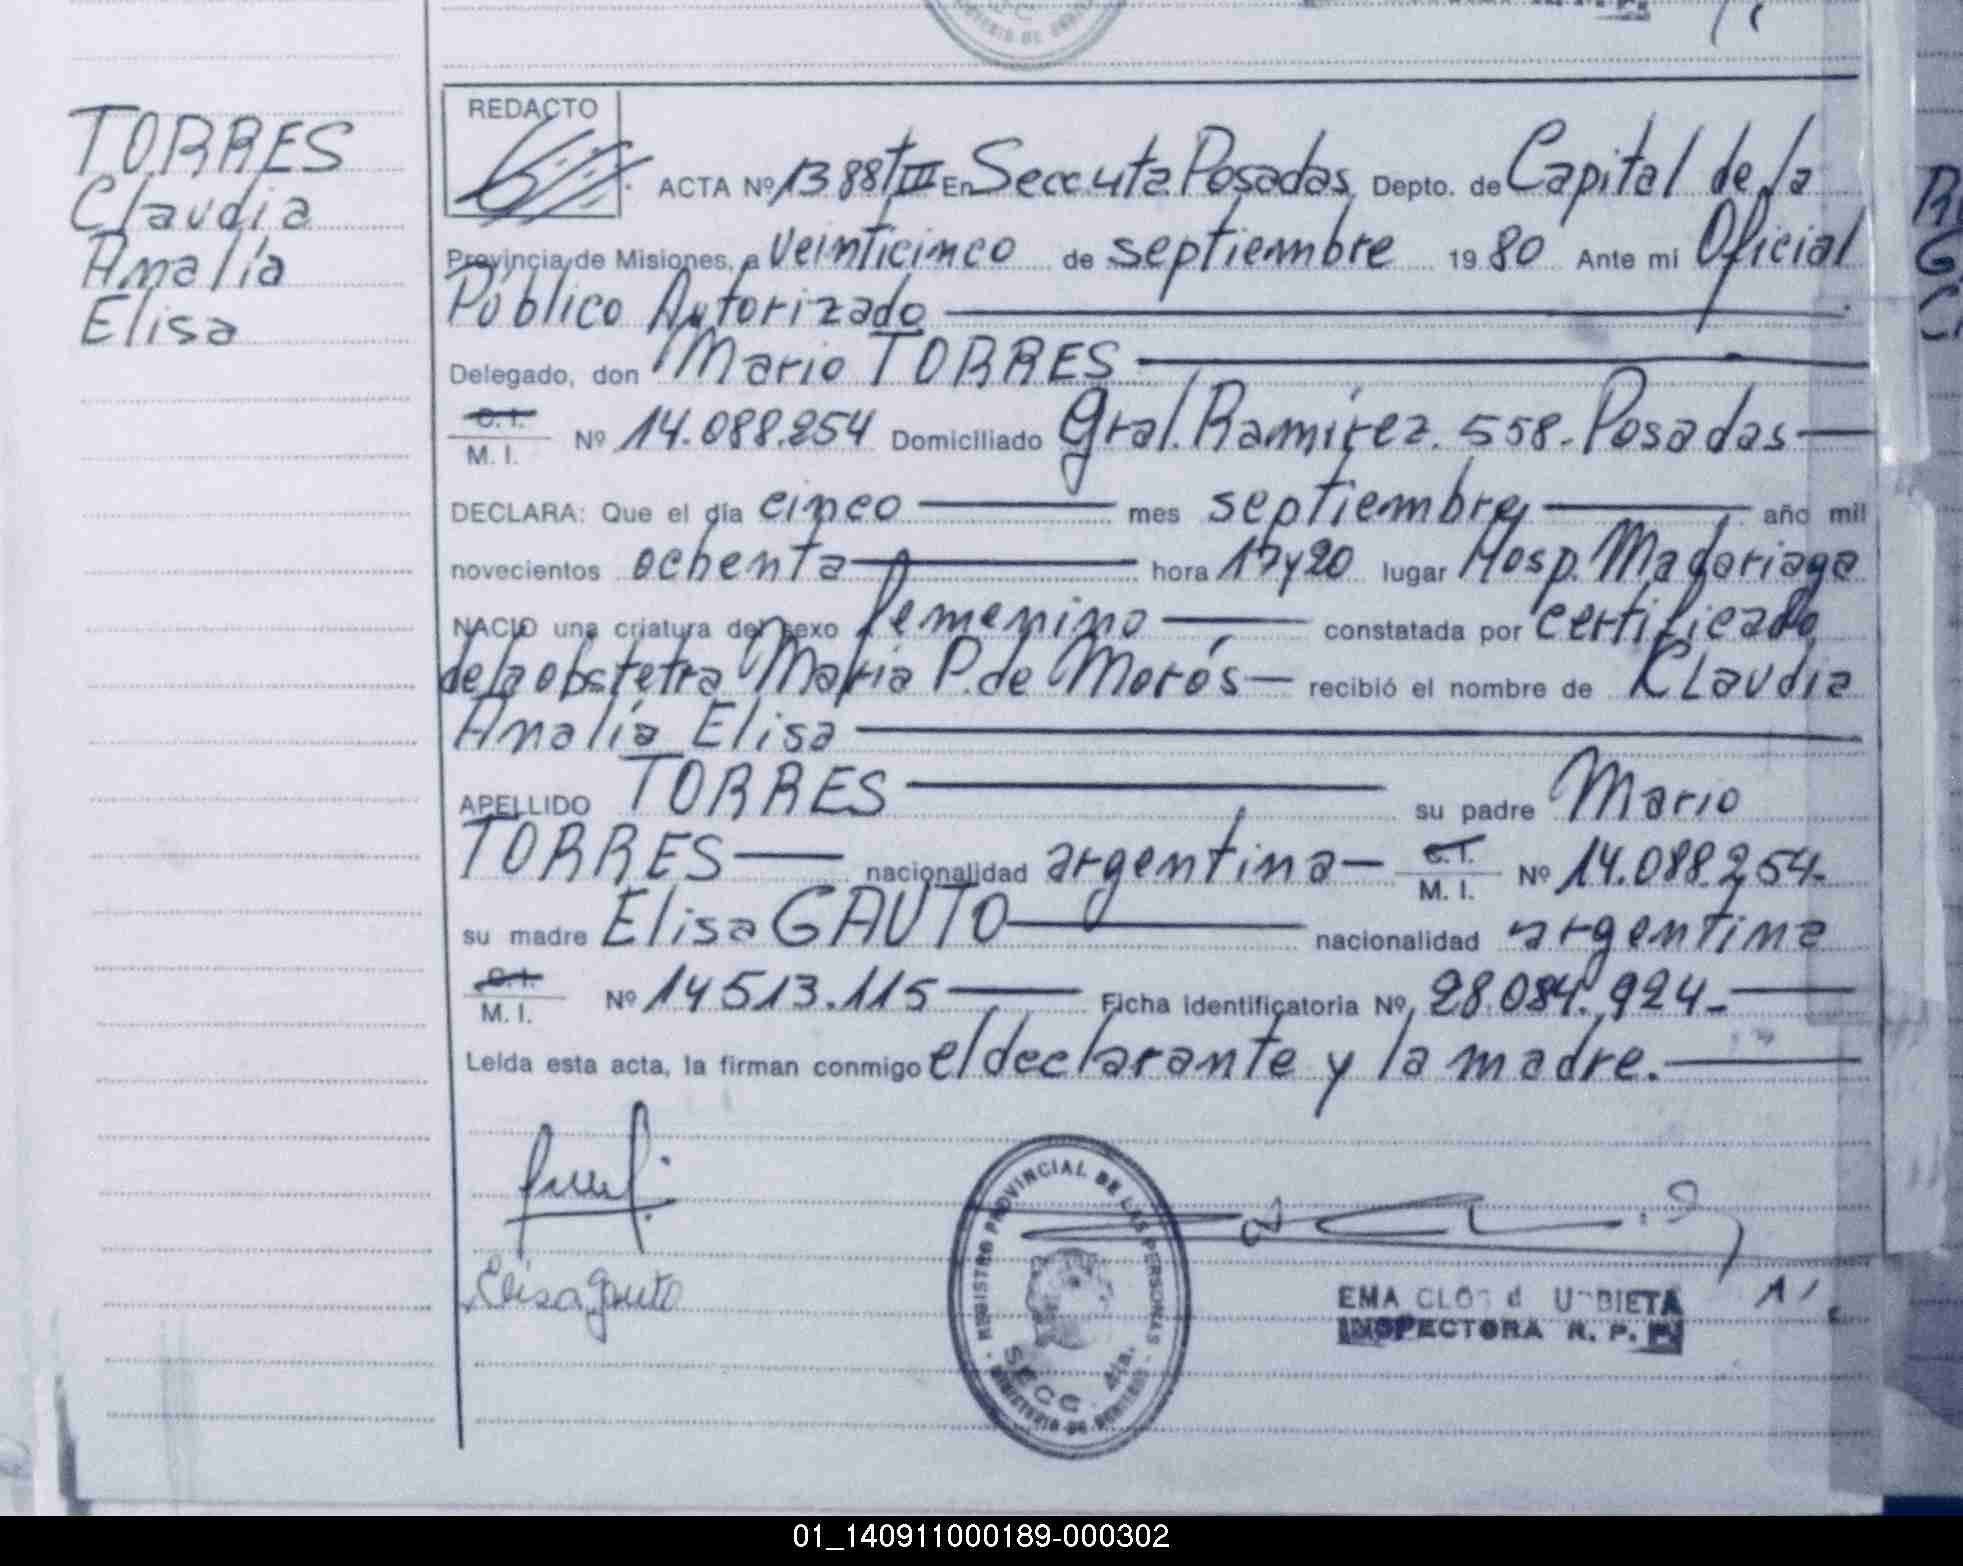 TORRES
Claudia
Analía
Elisa
REDACTO
ACTA Nº 1388 t III En Secc 4ta Posadas Depto. de Capital de la
Provincia de Misiones, a veinticinco de septiembre 19 80 Ante mi Oficial
Público Autorizado
Delegado, don Mario TORRES
C. I.
M. I. Nº 14.088.254 Domiciliado Gral. Ramírez. 558. Posadas
DECLARA: Que el día cinco mes septiembre año mil
novecientos ochenta hora 17 y 20 lugar Hosp. Madariaga
NACIO una criatura del sexo femenino constatada por certificado
de la obstetra Maria P. de Morós recibió el nombre de Claudia
Analía Elisa
APELLIDO TORRES su padre Mario
TORRES nacionalidad argentina C. I.
M. I. Nº 14.088.254.
su madre Elisa GAUTO nacionalidad argentina
C. I.
M. I. Nº 14513.115 Ficha identificatoria Nº 28.084.924
Leída esta acta, la firman conmigo el declarante y la madre.
Elisa Gauto
REGISTRO PROVINCIAL DE LAS PERSONAS
SECC. 4ta.
MINISTERIO DE GOBIERNO
EMA
INSPECTORA R. P. P.
01_140911000189-000302